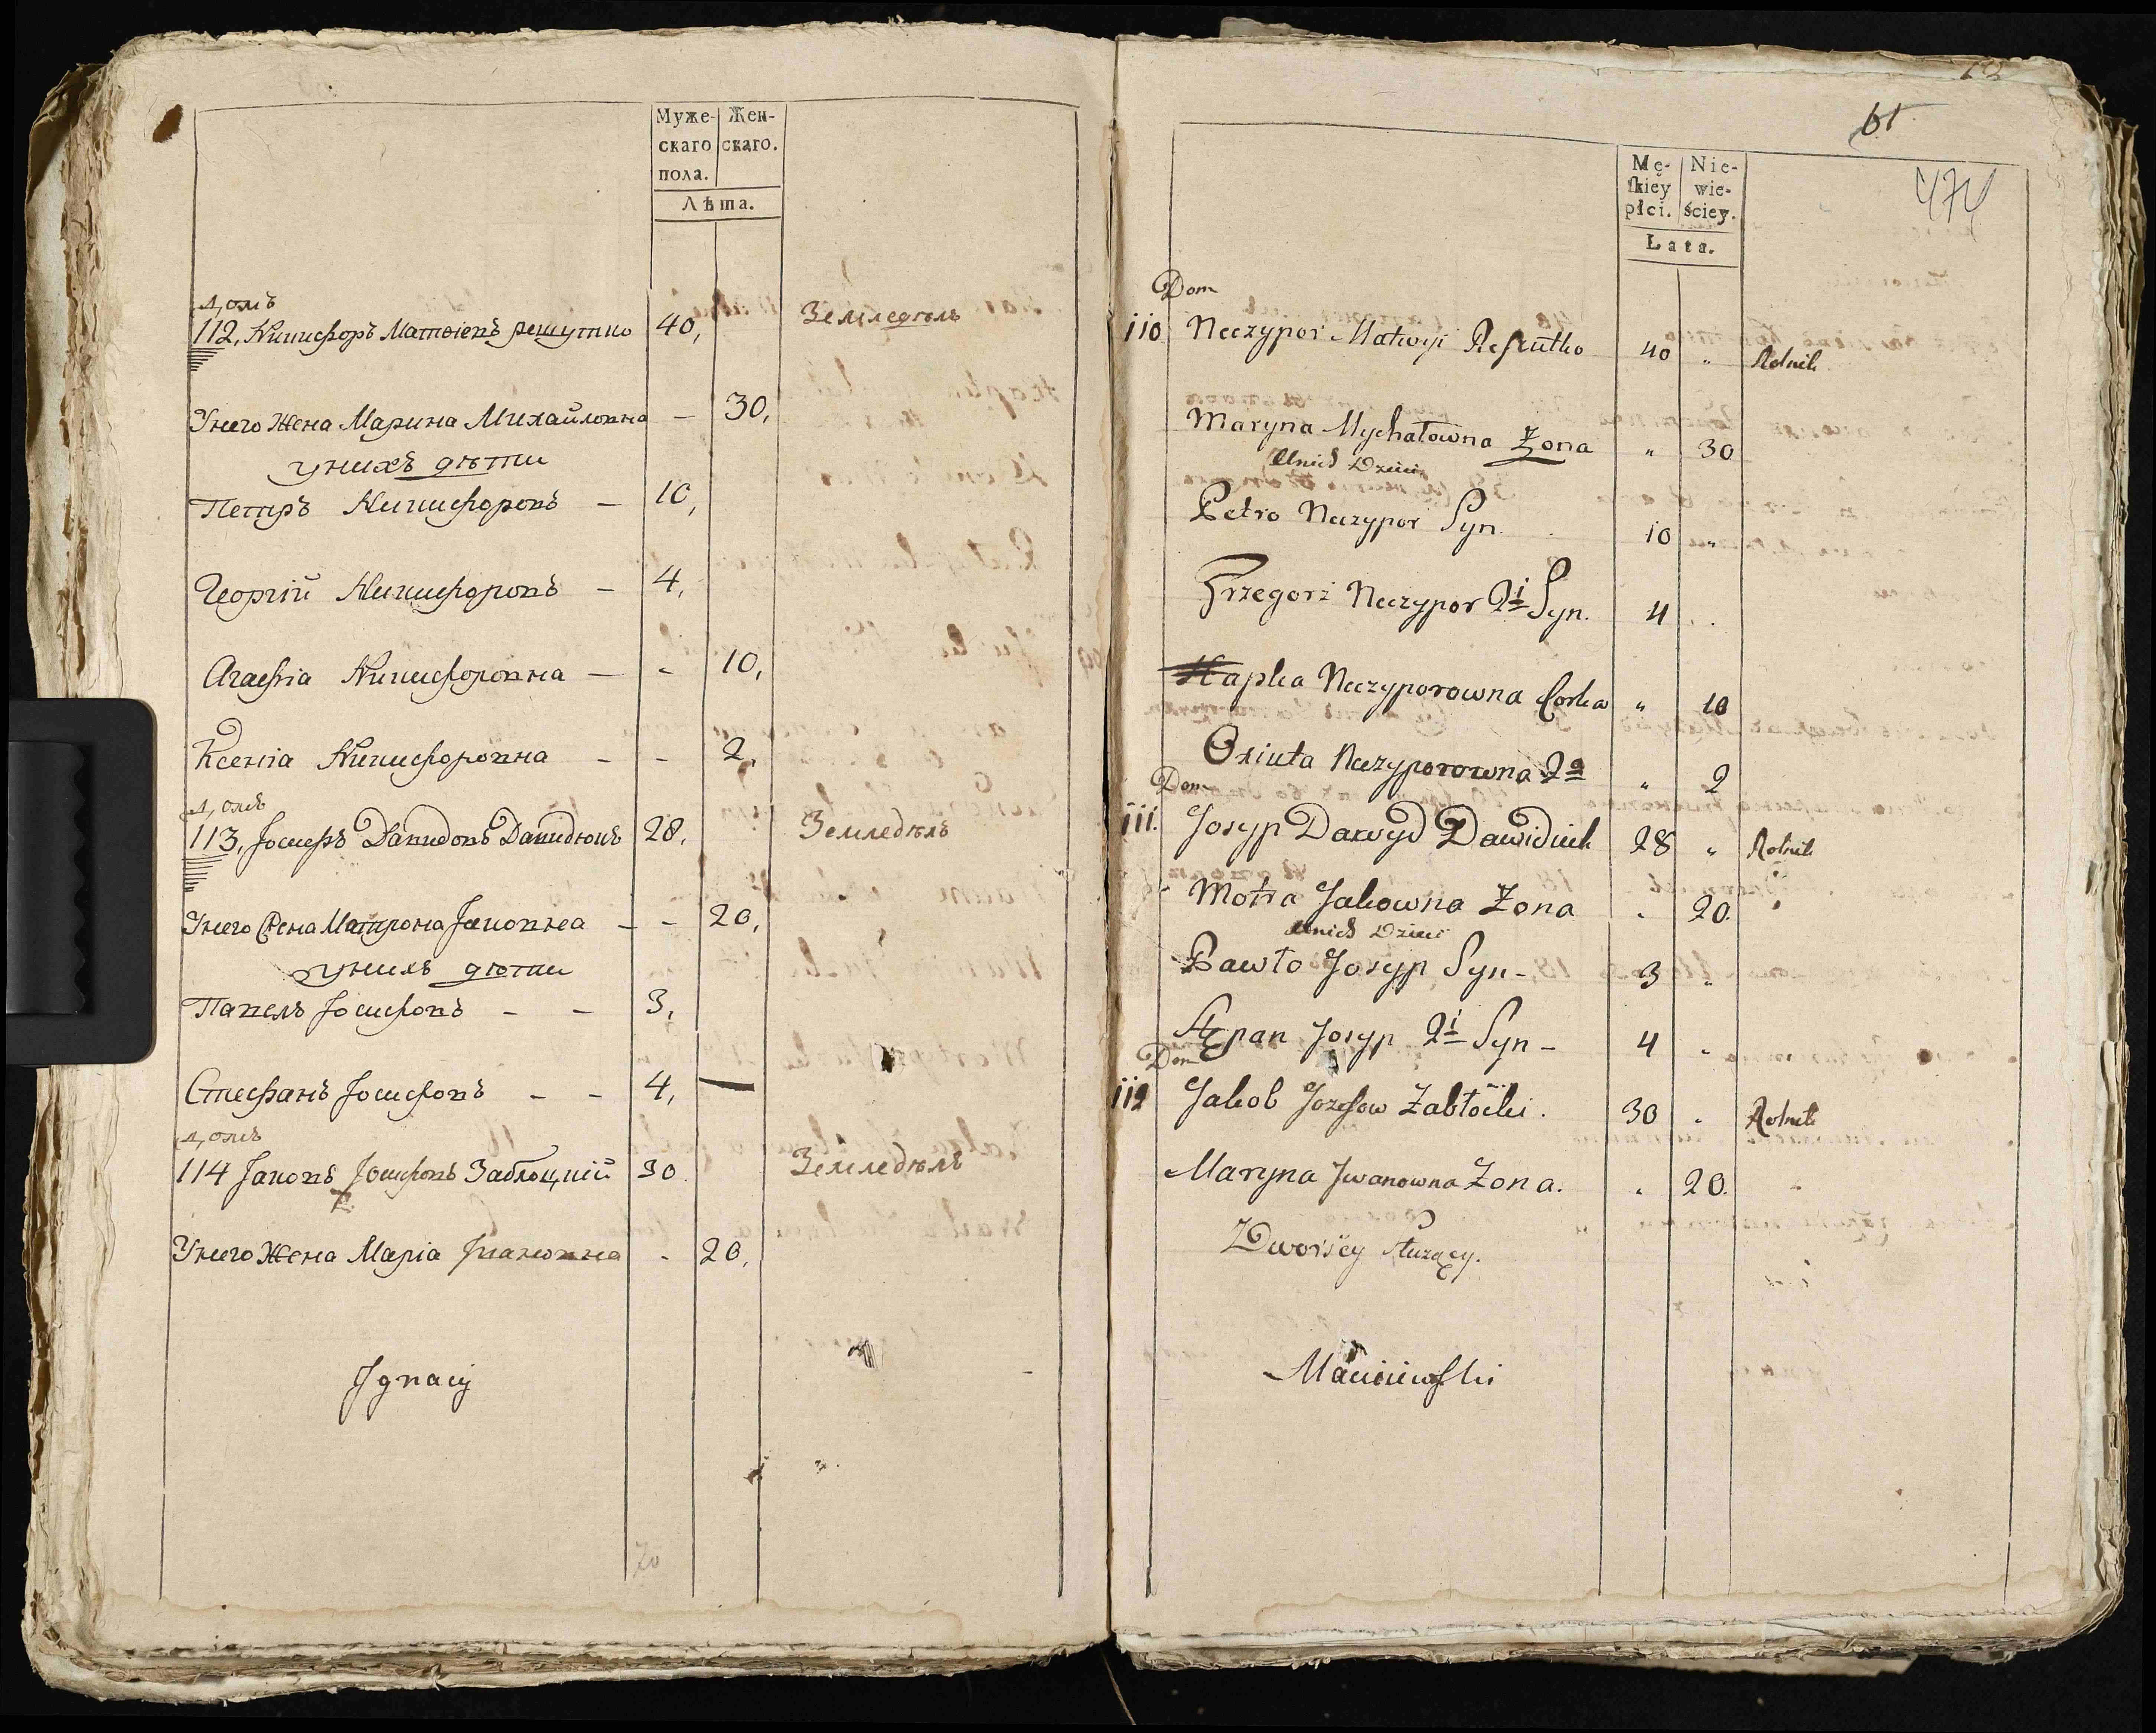 Муже-
скаго
пола.
Жен-
скаго.
Лѣта.
домъ
112, Никифоръ Матвіевъ решутко 40, Земледѣлъ
Унего Жена Марина Михайловна — 30,
унихъ дѣти
Петръ Никифоровъ — 10,
Георгій Никифоровъ — 4,
Агафіа Никифоровна — - 10,
Ксеніа Никифоровна - - 2,
домъ
113, Іосифъ Давидовъ Давидюкъ 28, Земледѣлъ
Унего Жена Матрона Іаковнеа - - 20,
унихъ дѣти
Павелъ Іосифовъ - - 3,
Стефанъ Іосифовъ - - 4, —
домъ
114 Іаковъ Іосифовъ Заблоцкій 30 Земледѣлъ
Унего Жена Маріа Івановна - 20,
Jgnacy
70
61
474
Mę-
skiey
płci.
Nie-
wie-
ściey.
Lata.
Dom
110 Neczypor Matwyi Reszutko 40 „ Rolnik
Maryna Mychałowna Żona „ 30
Unich Dzieci
Petro Neczypor Syn. 10 „
Grzegorz Neczypor 2i Syn. 4 . .
Hapka Neczyporowna Corka „ 10
Oxiuta Neczyporowna 2a „ 2
Dom
111. Josyp Dawyd Dawidiuk 28 „ Rolnik
Motra Jakowna Żona . 20.
Unich Dzieci
Pawło Josyp Syn - 3 „
Stepan Josyp 2i Syn - 4 .
Dom
112 Jakob Jozefow Zabłocki. 30 . Rolnik
Maryna Jwanowna Żona. . 20.
Dworscy służący.
Macieiewski